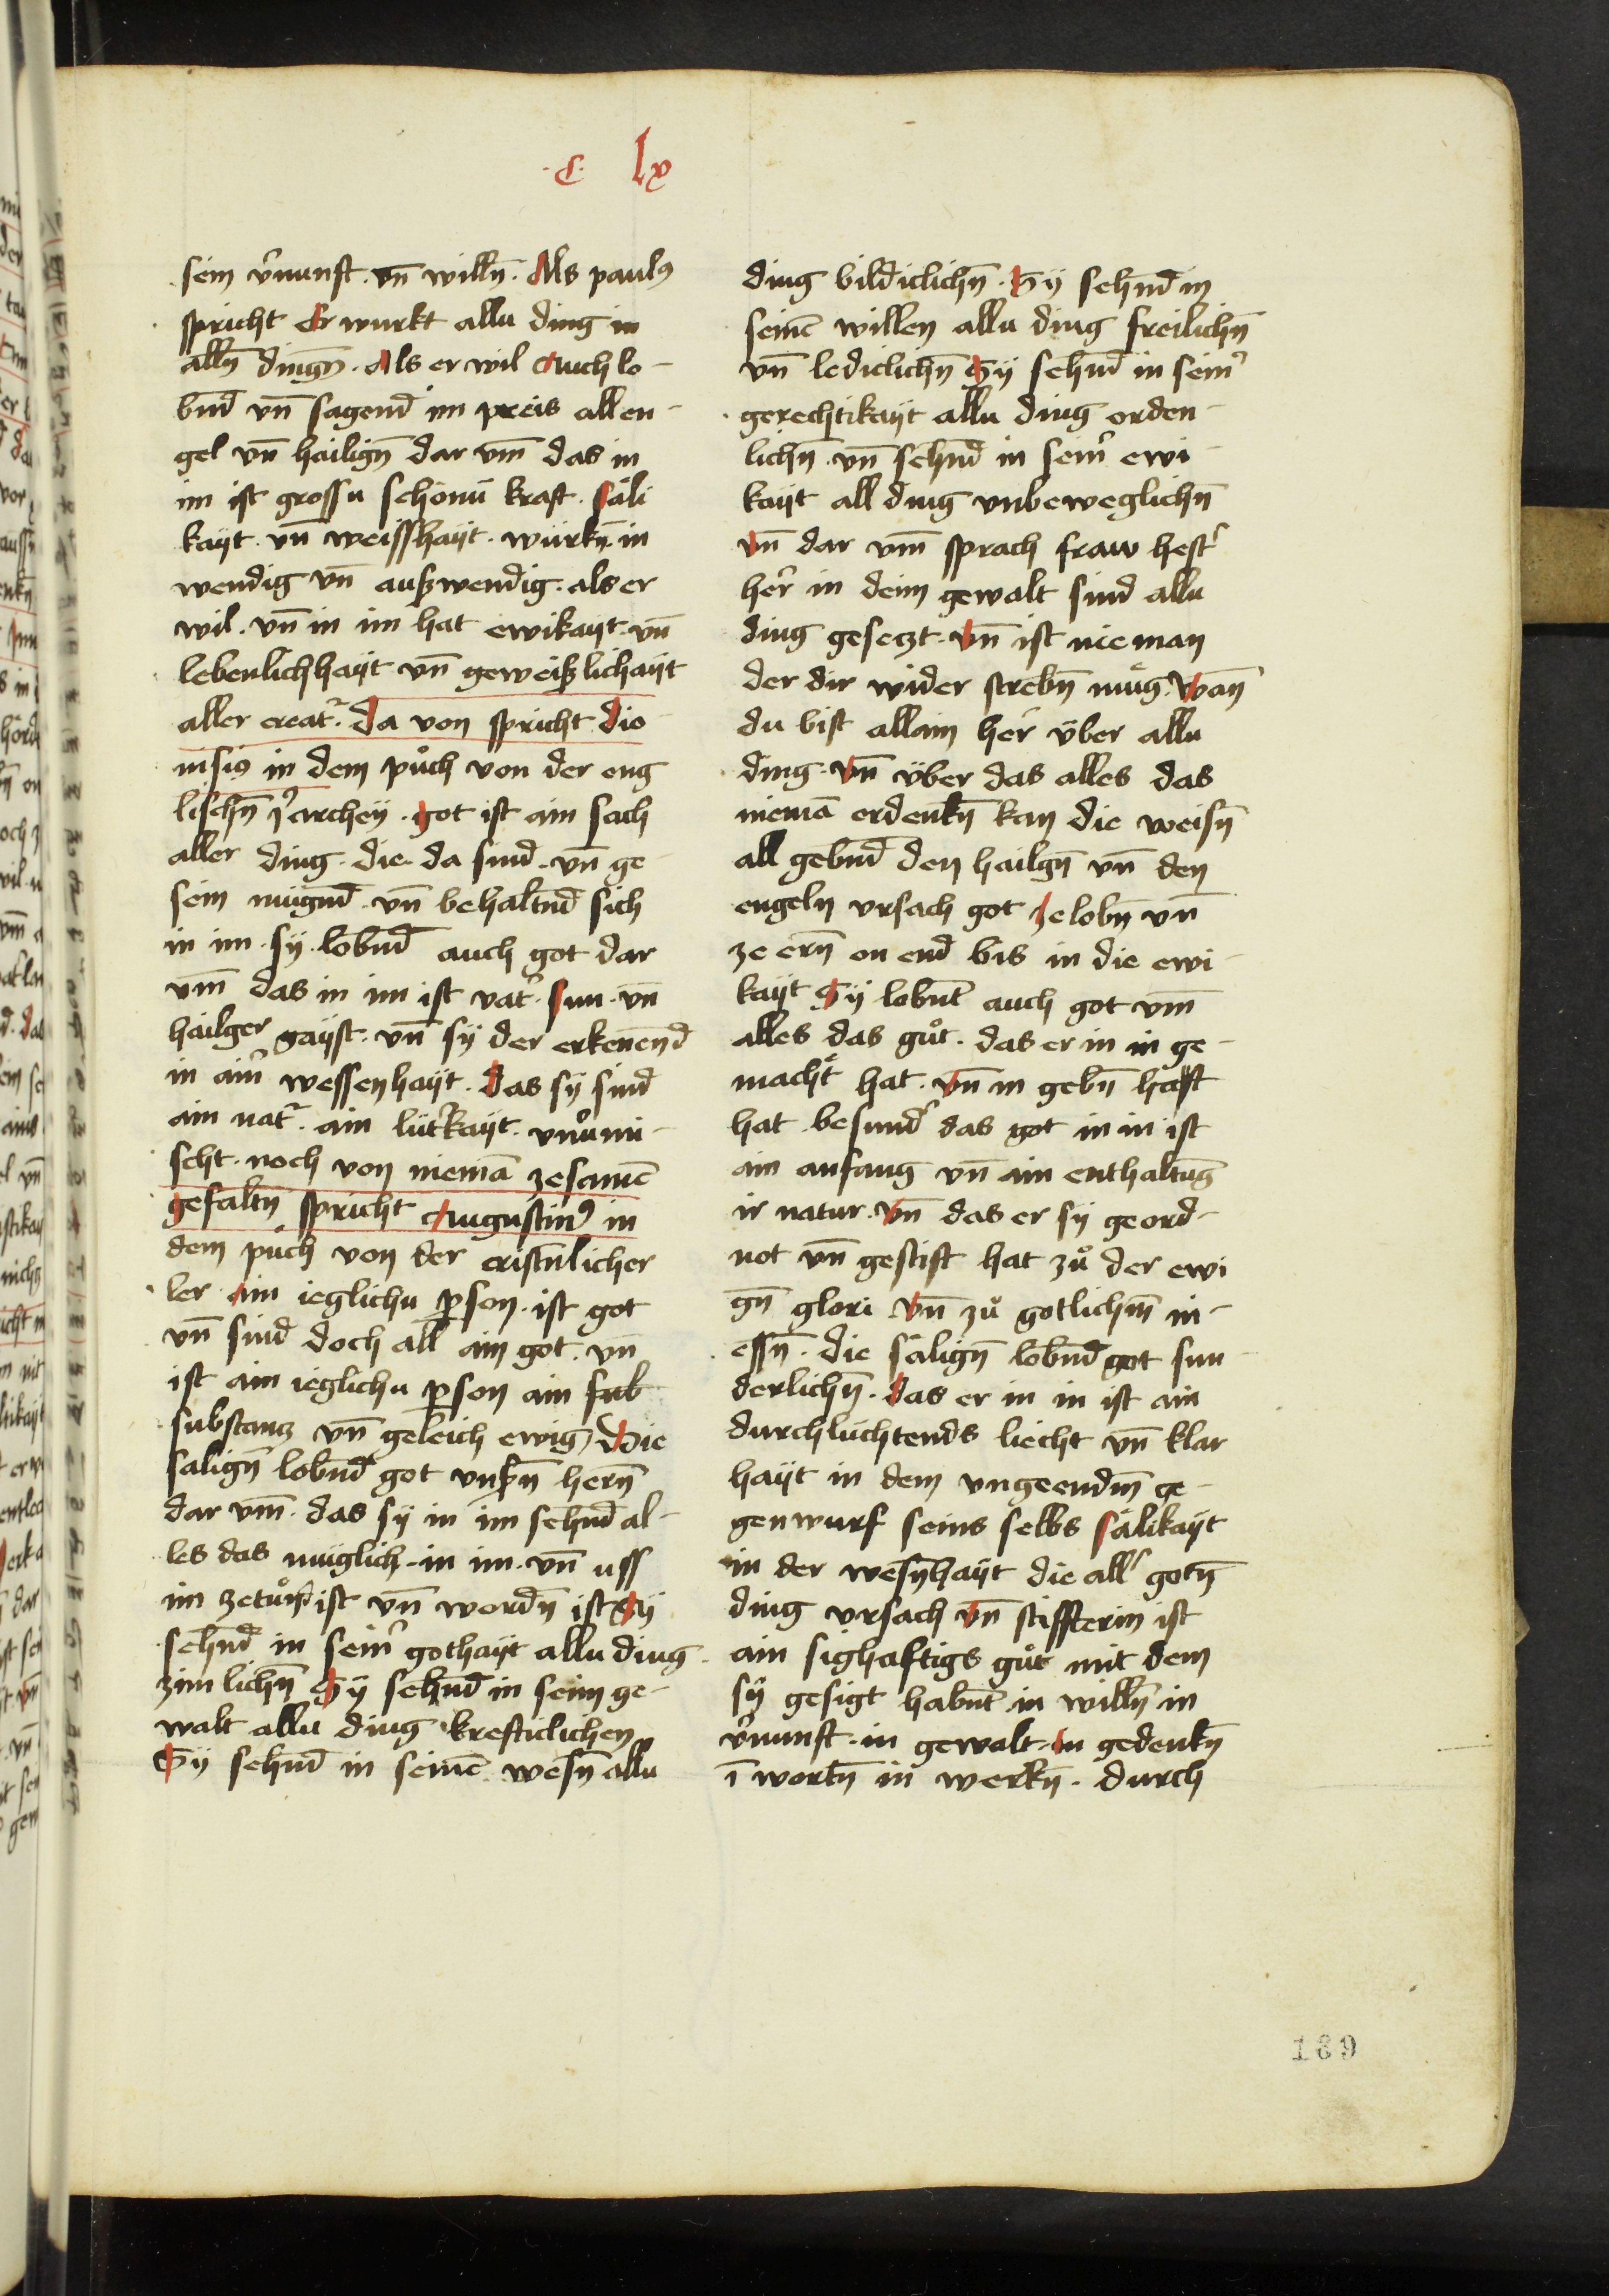 ·C· lx
sein v̓nunft · vn̄ willn̄ · Als paulꝰ
spricht Er wurkt allu ding in
alln̄ dingn̄ · Als er wil Auch lo-
bnd̄ vn̄ sagend im preis all en-
gel vn̄ hailign̄ dar vm̄ das in
im ist grossu schönü kraft · säli
kayt · vn̄ weisshayt · würkn̄ · in
wendig vn̄ außwendig · als er
wil · vn̄ in im hat ewikayt · vn̄
lebenlichhayt vn̄ geweißlichayt
aller creat̓ · da von spricht dio-
nisiꝰ in dem půch von der eng
lischn̄ Jerarchey · got ist ain sach
aller ding · die da sind · vn̄ ge-
sein mügnd̄ · vn̄ behaltnd̄ sich
in im · sy · lobnd̄ auch got dar
vm̄ das in im ist vat̓ · sun · vn̄
hailger gayst · vn̄ sy der erkenēnd
in ain̓ wessenhayt · das sy sind
ain nat̓ · ain lut̓kayt · vnu̓mi-
scht · noch von niemā zesamē
gefaltn̄ spricht Augustinꝰ in
dem půch von der cristn̄licher
ler · Ain ieglichu p̱son · ist got
vn̄ sind doch all ain got · vn̄
ist ain ieglichu p̱son ain sub
substantz vn̄ geleich ewig, Die
salign̄ lobnd̄ got vnsn̄ hern̄
dar vm̄ · das sy in im sehnd̄ al-
les das muglich · in im · vn̄ uss
im zetůn ist vn̄ wordn̄ ist Sy
sehnd̄ in sein̓ gothayt allu ding
zimlichn̄ Sy sehnd̄ in seim ge-
walt allu ding krefticlichen
Sy sehnd̄ in seinē wesn̄ allu
ding bildiclichn̄ · Sy sehnd̄ in
seinē willen allu ding freilichn̄
vn̄ lediclichn̄ Sy sehnd̄ in sein̓
gerechtikayt allu ding orden-
lichn̄ · vn̄ sehnd̄ in sein̓ ewi-
kayt all ding vnbeweglichn̄
vn̄ dar vm̄ sprach fraw hest̓
her̓ in deim gewalt sind allu
ding gesetzt · vn̄ ist nieman
der dir wider strebn̄ müg · Wan̄
du bist allain her̓ über allu
ding · vn̄ über das alles das
niemā erdenkn̄ kan die weisn̄
all gebnd̄ den hailgn̄ vn̄ den
engeln vrsach got ze lobn̄ vn̄
ze ern̄ on end bis in die ewi-
kayt Sy lobnt̄ auch got vm̄
alles das gůt · das er in in ge-
macht hat · vn̄ in gebn̄ haft
hat besund̓ das got in in ist
ain anfang vn̄ ain enthaltūg
ir natur · vn̄ das er sy geord-
not vn̄ gestift hat zů der ewi
gn̄ glori vn̄ zů gotlichm̄ in-
essn̄ · die sälign̄ lobnd̄ got sun-
derlichn̄ · das er in in ist ain
durchluchtends liecht vn̄ klar
hayt in dem vngeendm̄ ge-
genwurf seins selbs sälikayt
in der wesn̄hayt die all̓ gotn̄
ding vrsach vn̄ stiffterin ist
ain sighaftigs gůt mit dem
sy gesigt habnt̄ in willn̄ in
v̓nunft · in gewalt · in gedenkn̄
ī wortn̄ in werkn̄ · durch
189